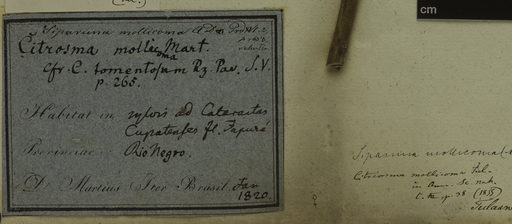 Siparuna mollicoma A DC Prod
Citrosma mollicoma Mart.
cfr. C. tomentosam Rz. Pav. S. V.
p. 265.
Habitat in sylvis ad Cataractas
Cupatenses fl. Japurá
Provinciae Rio Negro.
D. Martius Iter Brasil. Jan
1820.
cm
Siparuna mollicoma
Citrosma mollicoma Tul.
in Ann. Sc. nat.
(1855)
Tulasne